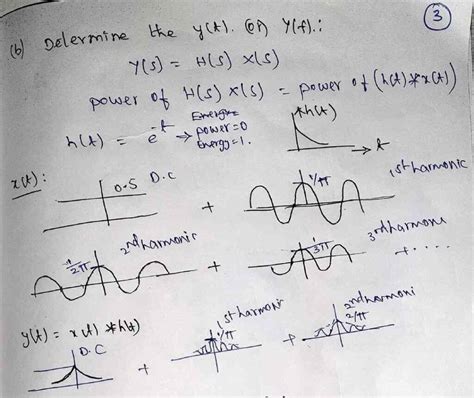 3
(b) Determine the y(t). @) Y(f).:
Y(s) = H(s) X(s)
power of H(s) X(s) = power of (h(t) * x(t))
h(t) = e^-t → power=0
Energy=1.
h(t)
t
x(t):
0.5 D.C
+
1/π
1st harmonic
-1/2π
2nd harmonic
+
1/3π
3rd harmoni
+ ....
y(t) = x(t) * h(t)
D.C
+
1st harmoni
1/π
+
2nd harmoni
2/π